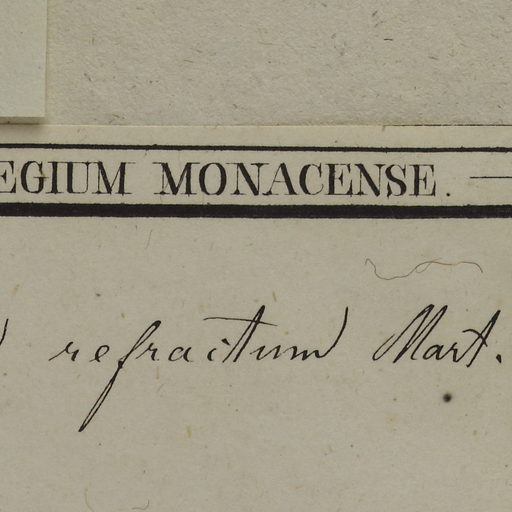 EGIUM MONACENSE.
refractum Mart.